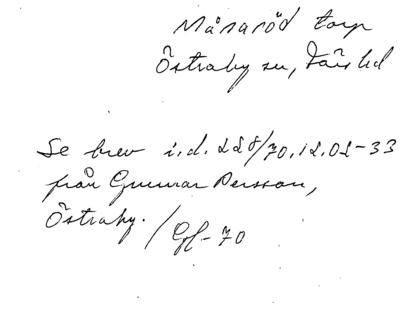 Månaröd torp
Östraby sn, Färs hd
Se brev i.d. 228/70.12.02-33
från Gunnar Persson,
Östraby. / Gf-70